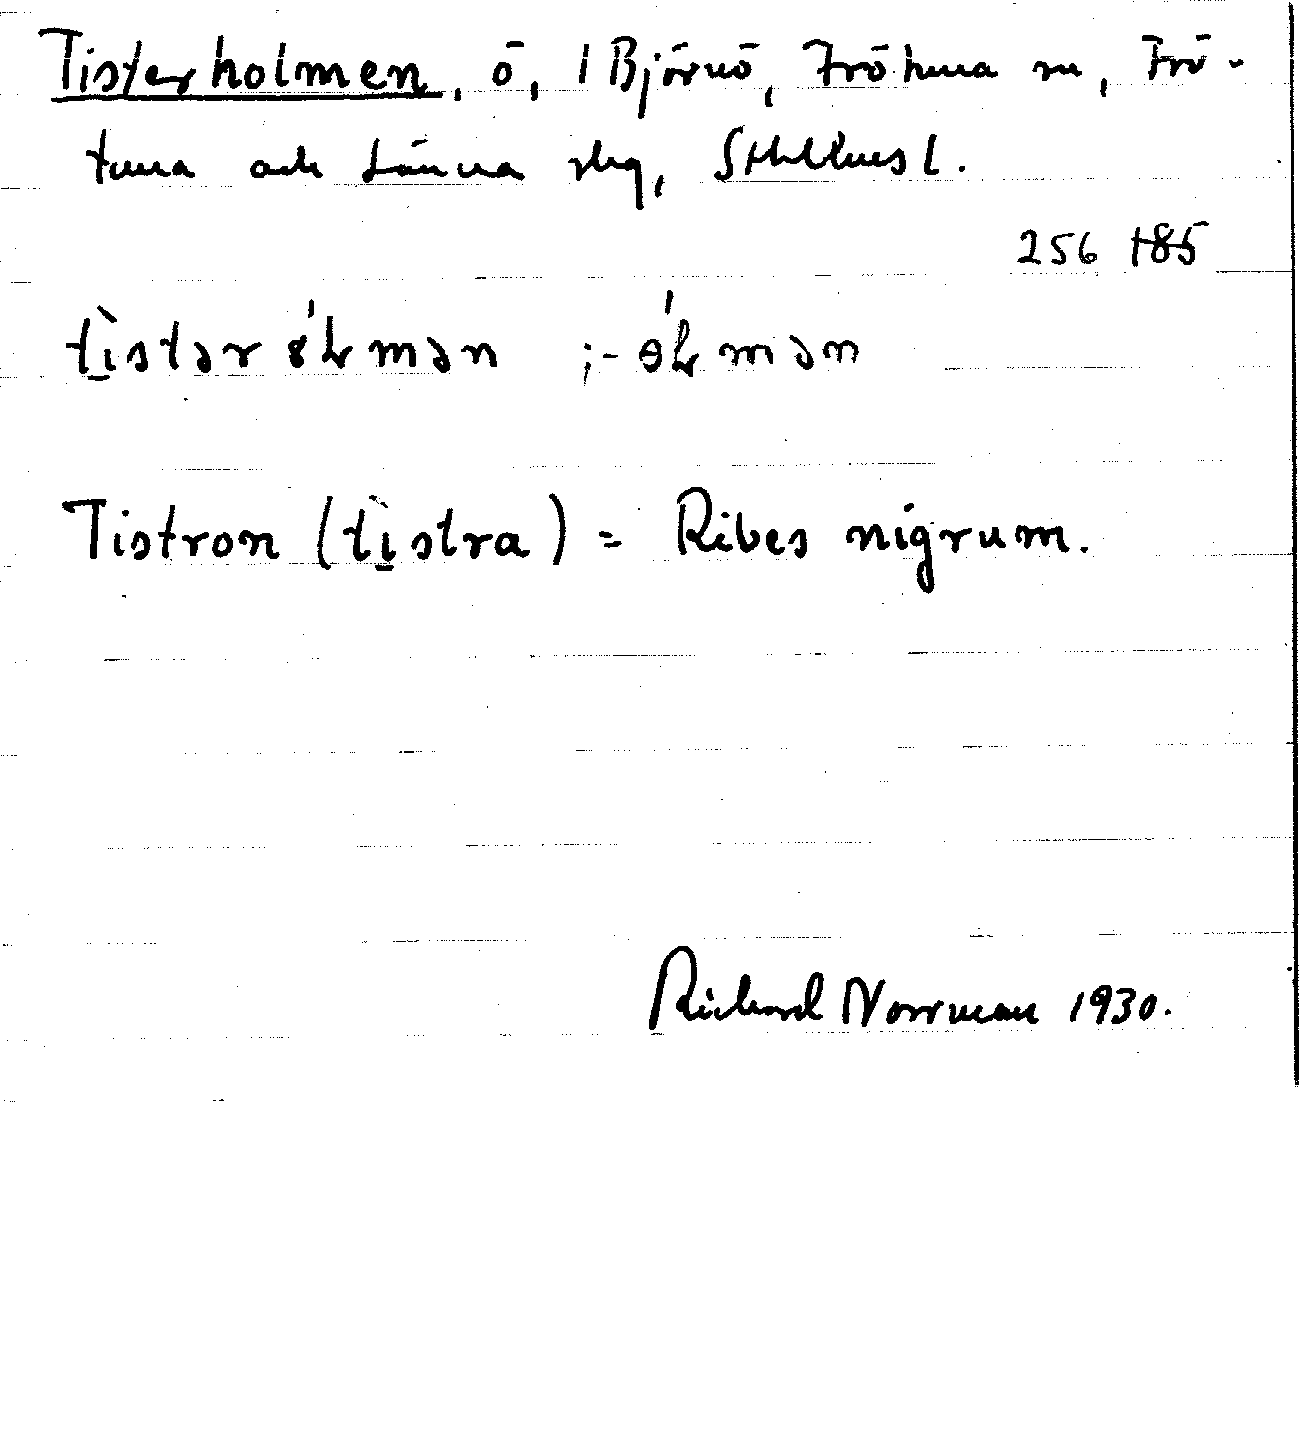 Tisterholmen, ö, 1 Björnö, Frötuna sn, Frö-
tuna och Länna skg, Sthlms l.
256 185
tìstərɞ́ɬmən ;-ɵ́ɬmən
Tistron (tìstra) = Ribes nigrum.
Richard Norrman 1930.